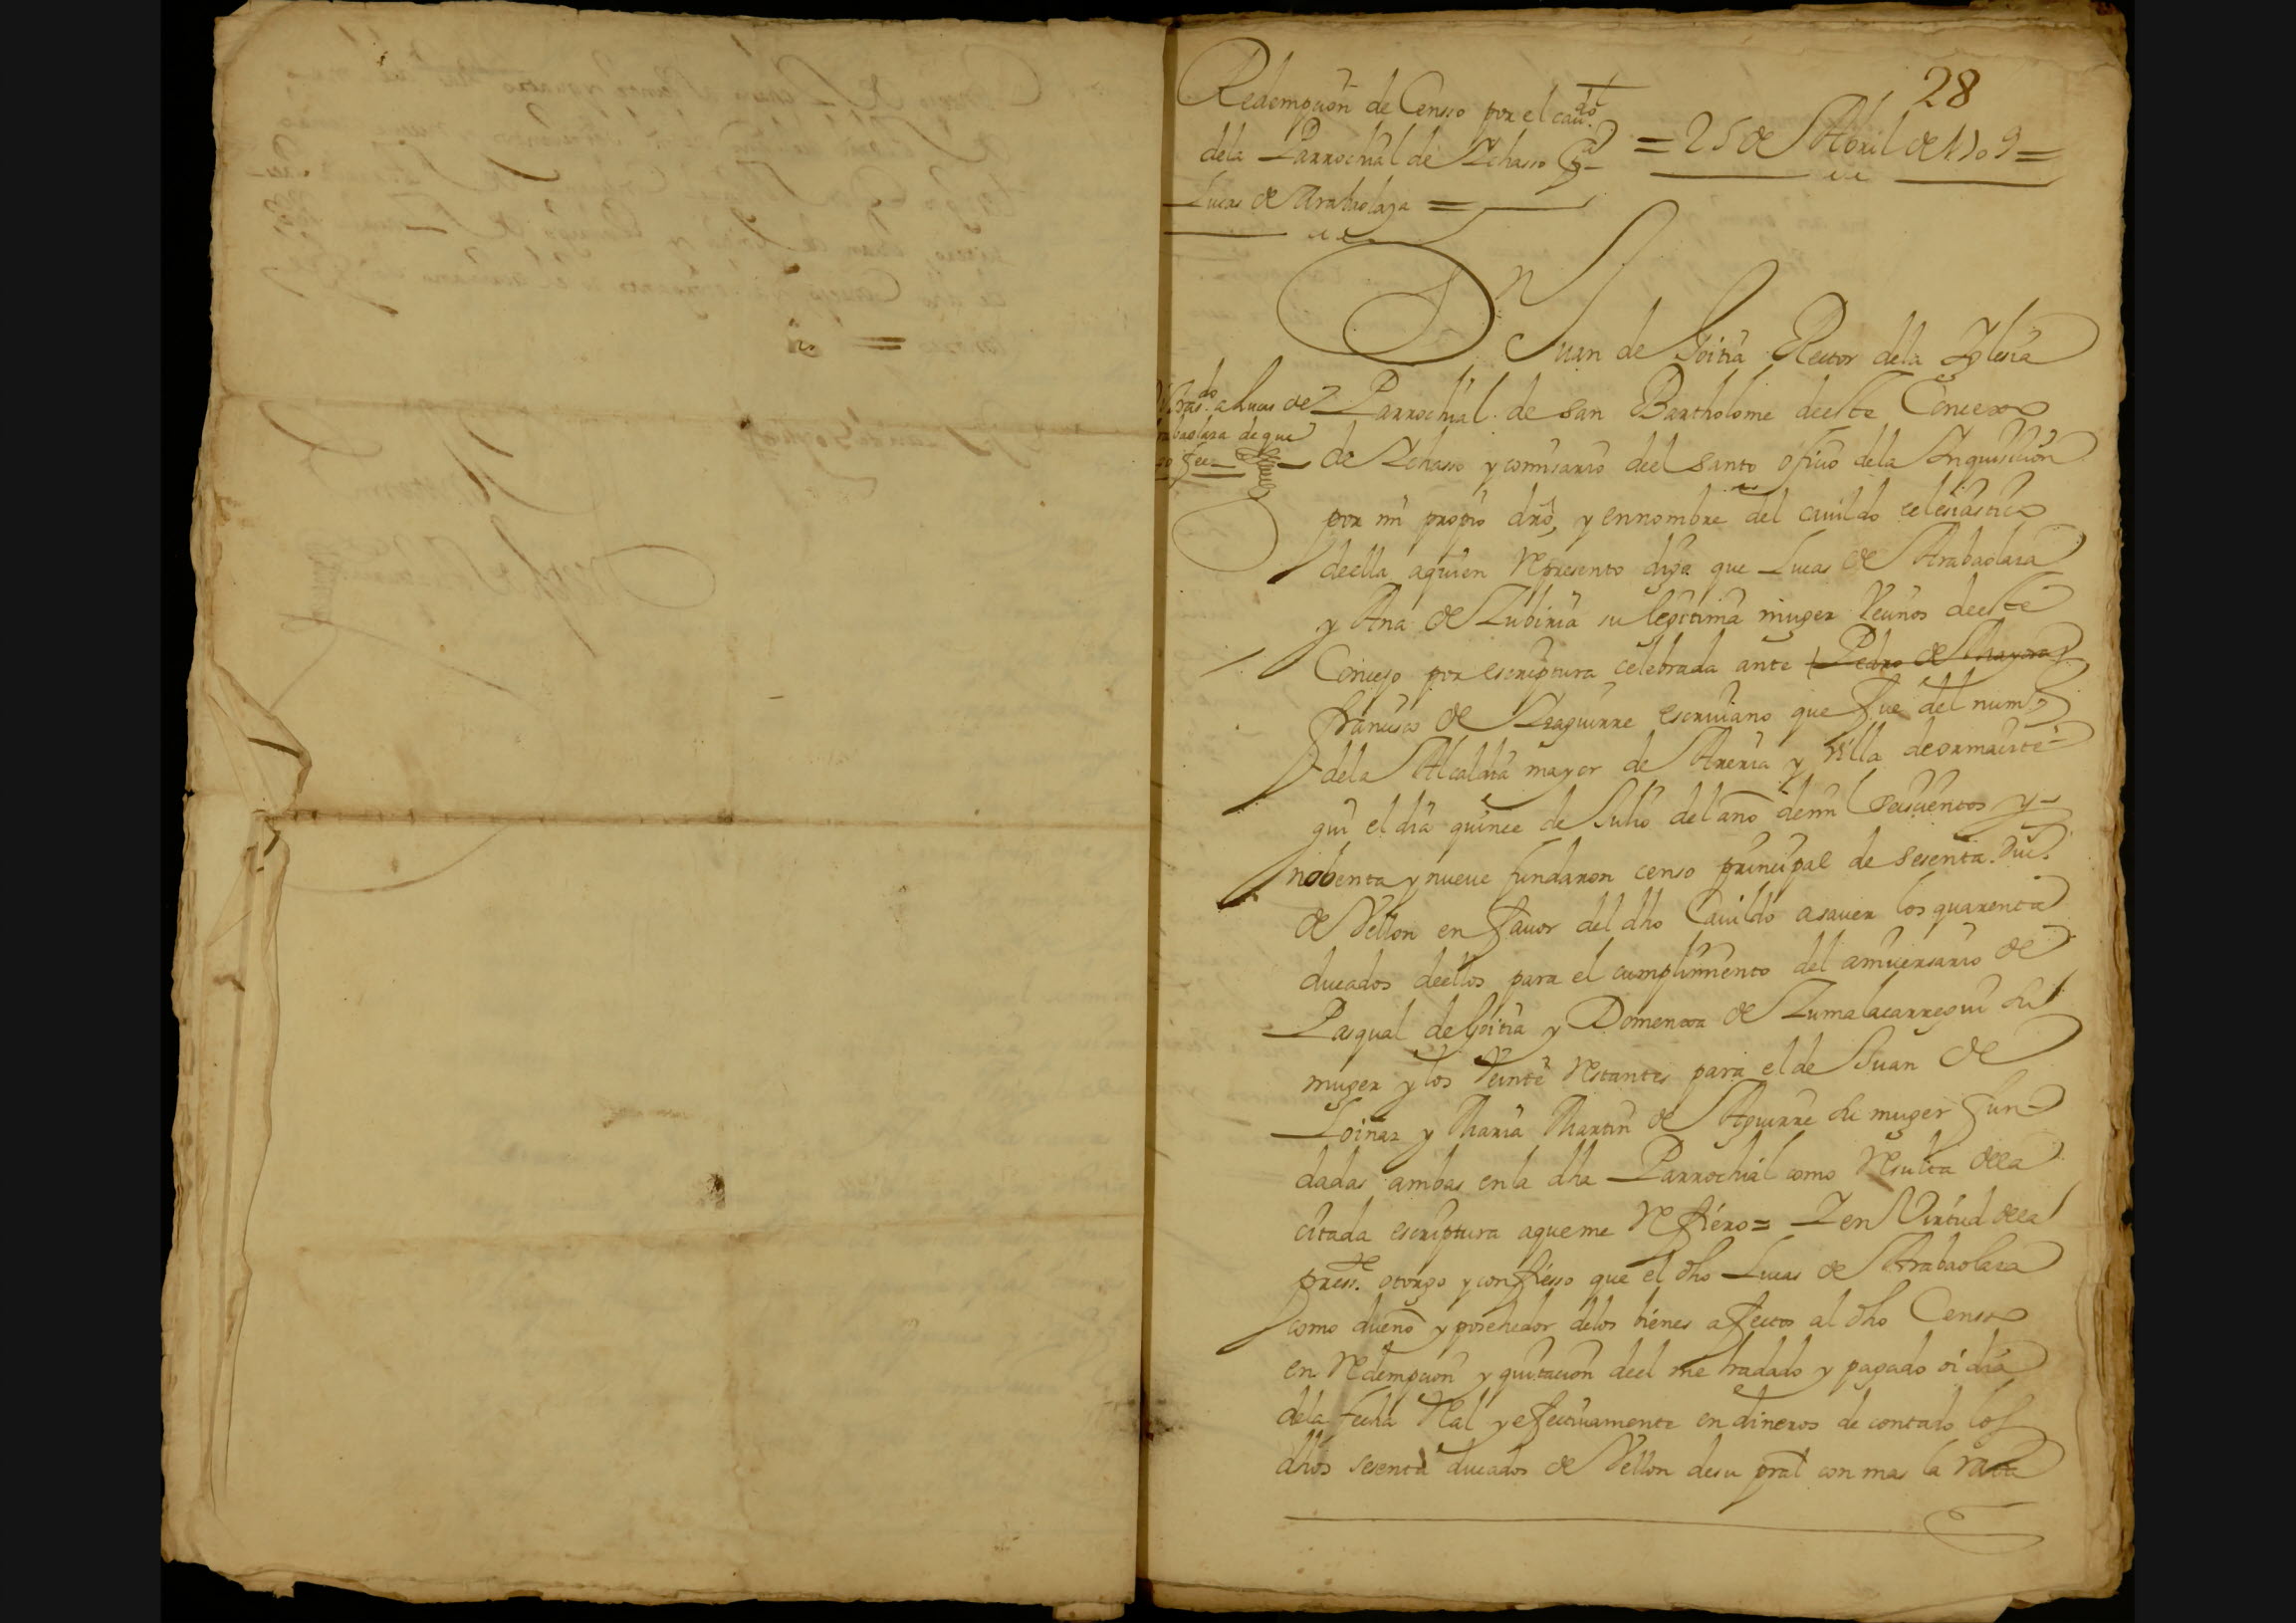 28
Redempcion de Censso por el cauᵈᵒ
dela Parrochial de Ychasso Cᵗᵃ
Lucas de Arabaolaza =
= 25 de Abril de 1709 =
Dn Juan de Goitia Rector dela Yglesia
Parrochial de san Bartholome deeste Concexo
de Ychasso y comisario deel santo oficio dela Inquisicion
por mi propio dro, y ennombre del cauildo eclesiastico
deella aquien Represento digo que Lucas de Arabaolaza
y Ana de Zubiria su legitima muger Veçinos deeste
Concejo por escriptura celebrada ante Pedro de Mayora
françisco de Yzaguirre escriuano que fue del num.º
dela Alcaldia mayor de Areria y villa deormaizte-
gui el dia quince de Julio del año demil seiscientos y
nobenta y nueue fundaron censo principal de sesenta duc.ˢ
de Vellon en fauor del dho Cauildo asauer los quarenta
ducados deellos para el cumplimiento del aniuersario de
Pasqual de Goitia y Domenxa de Zumalacarregui su
muger y los Veinte Restantes para el de Juan de
Loinaz y Maria Martin de Aguirre su muger fun-
dadas ambas enla dha Parrochial como Resulta dela
citada escriptura aqueme Refiero = Y en Virtud dela
press.ᵗᵉ otorgo y confiesso que el dho Lucas de Arabaolaza
como dueño y posehedor delos bienes afectos al dho Censo
en Redempcion y quitacion deel me hadado y pagado oi dia
dela fecha Real y efectiuamente en dineros de contado los
dhos sesenta ducados de Vellon desu pral con mas la rata
a Lucas de
baolaza de que
fee